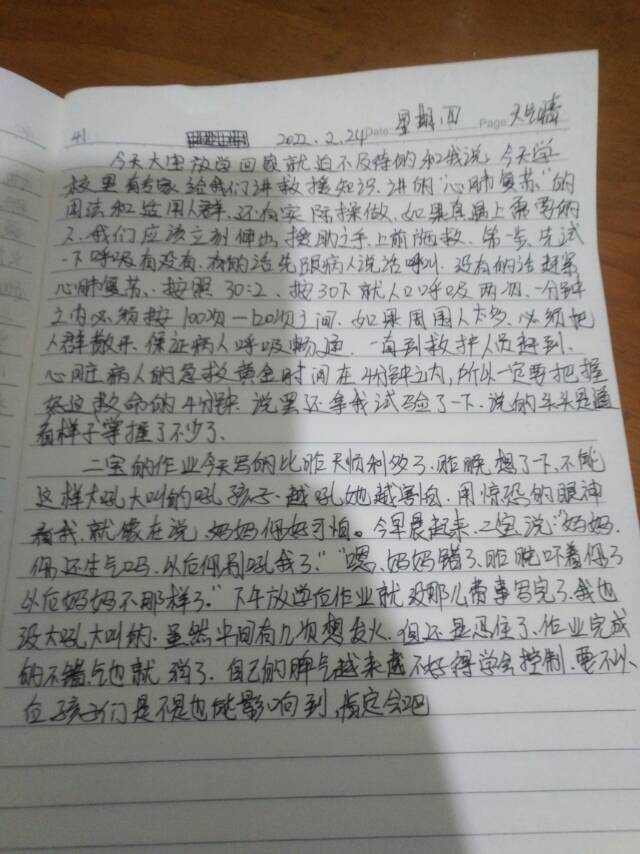 41 2022.2.24 Date: 星期四 Page: 天气晴
今天大宝放学回家就迫不及待的和我说,今天学
校里有专家给我们讲救援知识.讲的"心肺复苏"的
用法和适用人群,还有实际操做,如果真遇上需要的
人.我们应该立刻伸出援助之手,上前施救.第一步先试
一下呼吸有没有.有的话先跟病人说话呼叫.没有的话赶紧
心肺复苏、按照30:2.按30下就人口呼吸两次.一分钟
之内必须按100次一120次之间.如果周围人太多.必须把
人群散开.保证病人呼吸畅通.一直到救护人员赶到.
心脏病人的急救黄金时间在4分钟之内,所以一定要把握
好这救命的4分钟.说罢还拿我试验了一下.说的头头是道
看样子掌握了不少了.
二宝的作业今天写的比昨天顺利多了.昨晚想了下,不能
这样大吼大叫的吼孩子.越吼她越害怕.用惊恐的眼神
看我.就像在说,妈妈你好可怕。今早晨起来,二宝说:"妈妈,
你还生气吗.以后你别吼我了.""嗯.妈妈错了.昨晚吓着你了
以后妈妈不那样了."下午放学后作业就没那么费事写完了.我也
没大吼大叫的.虽然中间有几次想发火.但还是忍住了.作业完成
的不错.气也就消了.自己的脾气越来越不好得学会控制.要不以
后孩子们是不是也能影响到,指定会吧